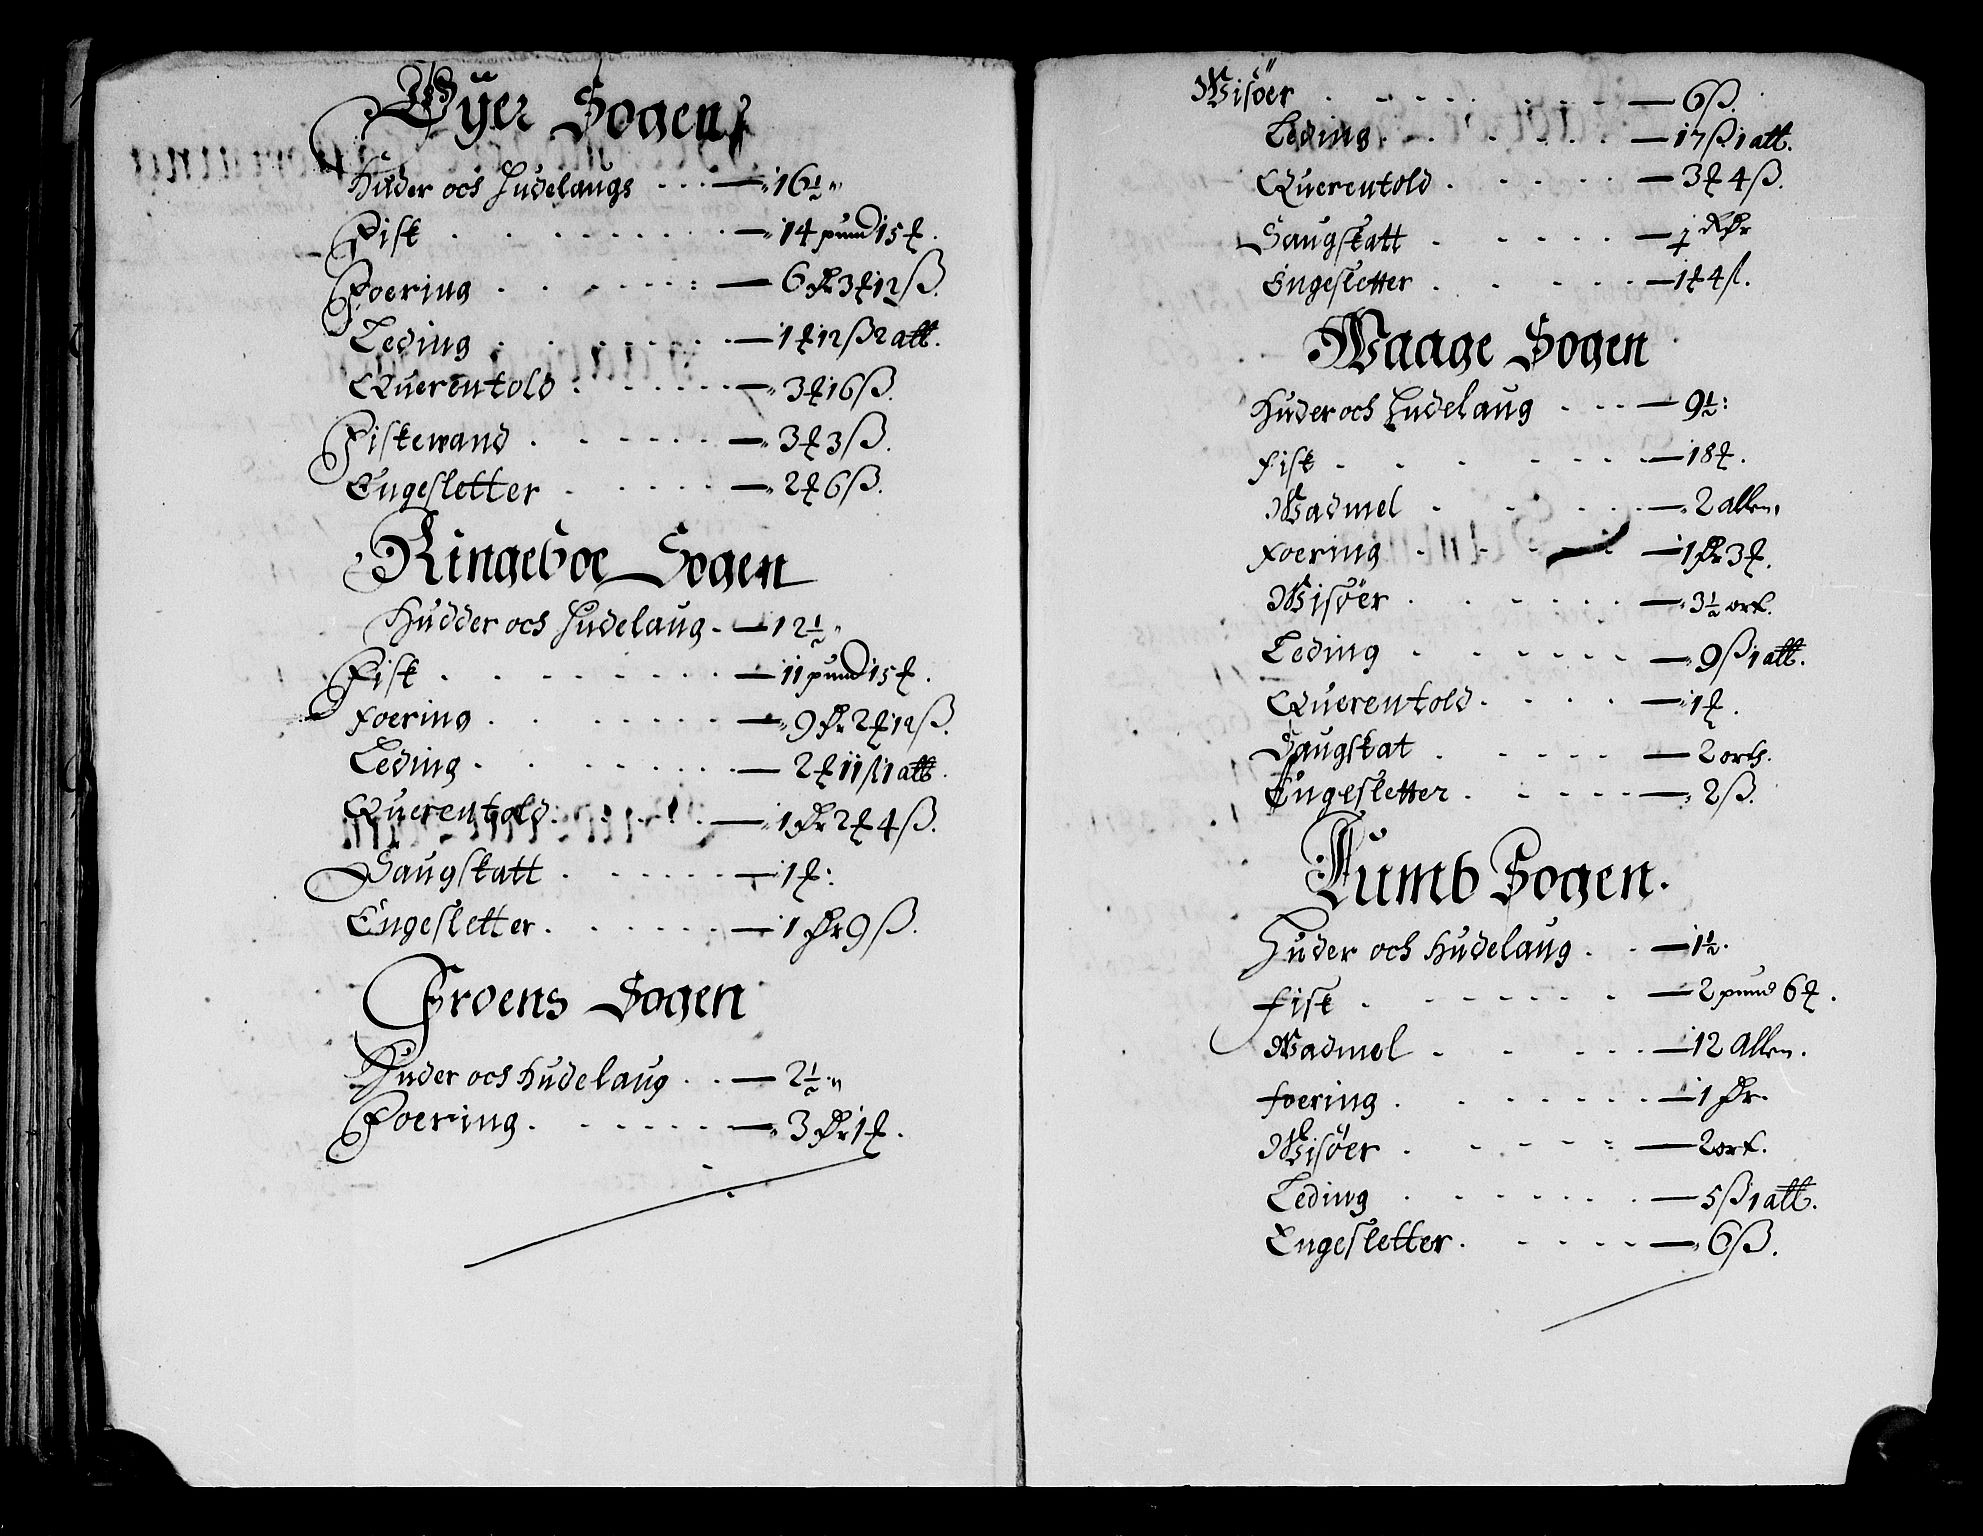 Øÿer Sogen
Huder och Hudelaugs - - - — 16½
Fisk - - - — 14 pund 15 ℔.
Foering - - - — 6 Dr 3 ℔ 12 ß.
Leding - - - — 1 ℔ 12 ß 2 alb.
Querentold - - - — 3 ℔ 16 ß.
Fiskewand - - - — 3 ℔ 3 ß.
Engesletter - - - — 2 ℔ 6 ß.
Ringeboe Sogen
Hudder och Hudelaug - — 12½
Fisk - - - — 11 pund 15 ℔.
Foering - - - — 9 Dr 2 ℔ 12 ß.
Leding - - - — 2 ℔ 11 ß 1 alb.
Querentold - - - — 1 Dr 2 ℔ 4 ß.
Saugskatt - - - — 1 ℔:
Engesletter - - - — 1 Dr 9 ß.
Froens Sogen
Huder och Hudelaug - - — 2½
Foering - - - — 3 Dr 1 ℔.
Wisöer - - - — 6 ß.
Leding - - - — 17 ß 1 alb.
Querentold - - - — 3 ℔ 4 ß.
Saugskatt - - - — ½ RDr
Engesletter - - - — 1 ℔ 4 ß.
Waage Sogen
Huder och Hudelaug - - - — 9½:
Fisk - - - — 18 ℔.
Wadmel - - - — 2 Allen.
Foering - - - — 1 Dr 3 ℔.
Wisöer - - - — 3½ ort.
Leding - - - — 9 ß 1 alb.
Querentold - - - — 1 ℔.
Saugskat - - - — 2 orth.
Engesletter - - - — 2 ß.
Lumb Sogen.
Huder och Hudelaug - - — 1½.
Fisk - - - — 2 pund 6 ℔.
Wadmel - - - — 12 Allen.
Foering - - - — 1 Dr.
Wisöer - - - — 2 ort.
Leding - - - — 5 ß 1 alb.
Engesletter - - - — 6 ß.